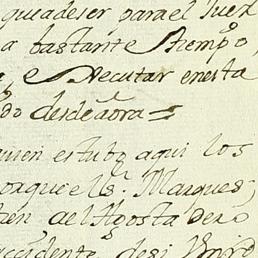 quiadeser parael Juez
a bastante tiempo,
e executar enesta
do desdeaora =
quien estubo aqui los
porque el s.r Marques,
ael Agosta dero
accidente desi